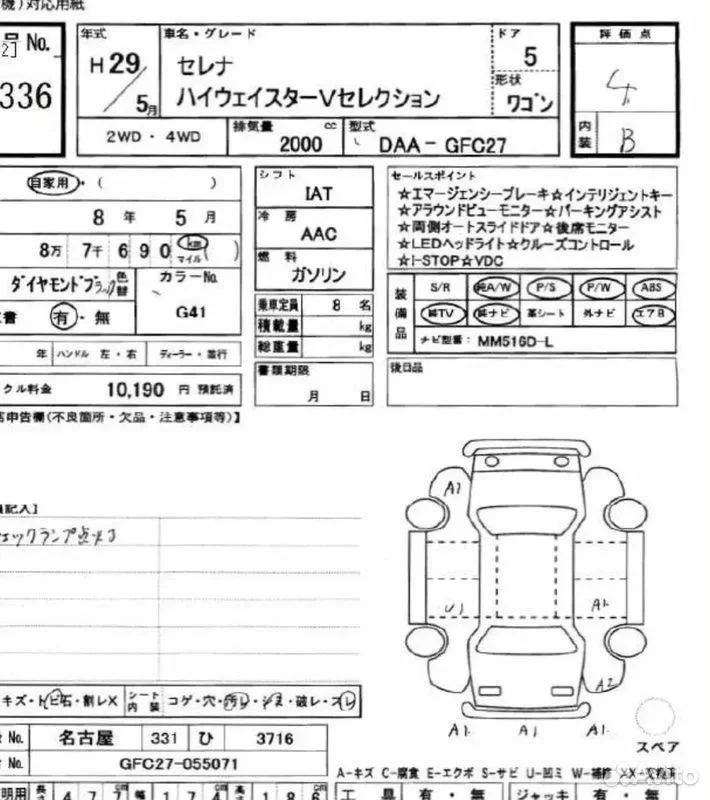 機)対応用紙
号 No.
2]
336
年式
H 29/5月
車名・グレード
セレナ
ハイウェイスターVセレクション
ドア
5
形状
ワゴン
評価点
4
内装
B
2WD ・ 4WD
排気量
2000 cc
型式
DAA- GFC27
自家用 ・( )
8 年 5 月
8万 7千 6 9 0 km マイル ( )
ダイヤモンドブラック
色替
カラーNo.
G41
書 有 ・ 無
年 ハンドル 左 ・ 右 ディーラー ・ 並行
クル料金 10,190 円 預託済
シフト
IAT
冷房
AAC
燃料
ガソリン
乗車定員 8 名
積載量 kg
総重量 kg
書類期限
月 日
セールスポイント
☆エマージェンシーブレーキ☆インテリジェントキー
☆アラウンドビューモニター☆パーキングアシスト
☆両側オートスライドドア☆後席モニター
☆LEDヘッドライト☆クルーズコントロール
☆I-STOP☆VDC
装備品
S/R 純A/W P/S P/W ABS
純TV 純ナビ 革シート 外ナビ エアB
ナビ型番: MM516D-L
後日品
申告欄(不良箇所・欠品・注意事項等)】
記入】
ェックランプ点灯
A1
U1
A1
A2
A1 A1 A1
スペア
キズ・トビ石・割レX
シート内装
コゲ・穴・汚レ・シミ・破レ・スレ
No. 名古屋 331 ひ 3716
No. GFC27-055071
A-キズ C-腐食 E-エクボ S-サビ U-凹ミ W-補修 XX-交換済
明用 長さ 4 7 7 cm 幅 1 7 4 cm 高さ 1 8 6 cm
工具 有 ・ 無 ジャッキ 有 ・ 無
Avito